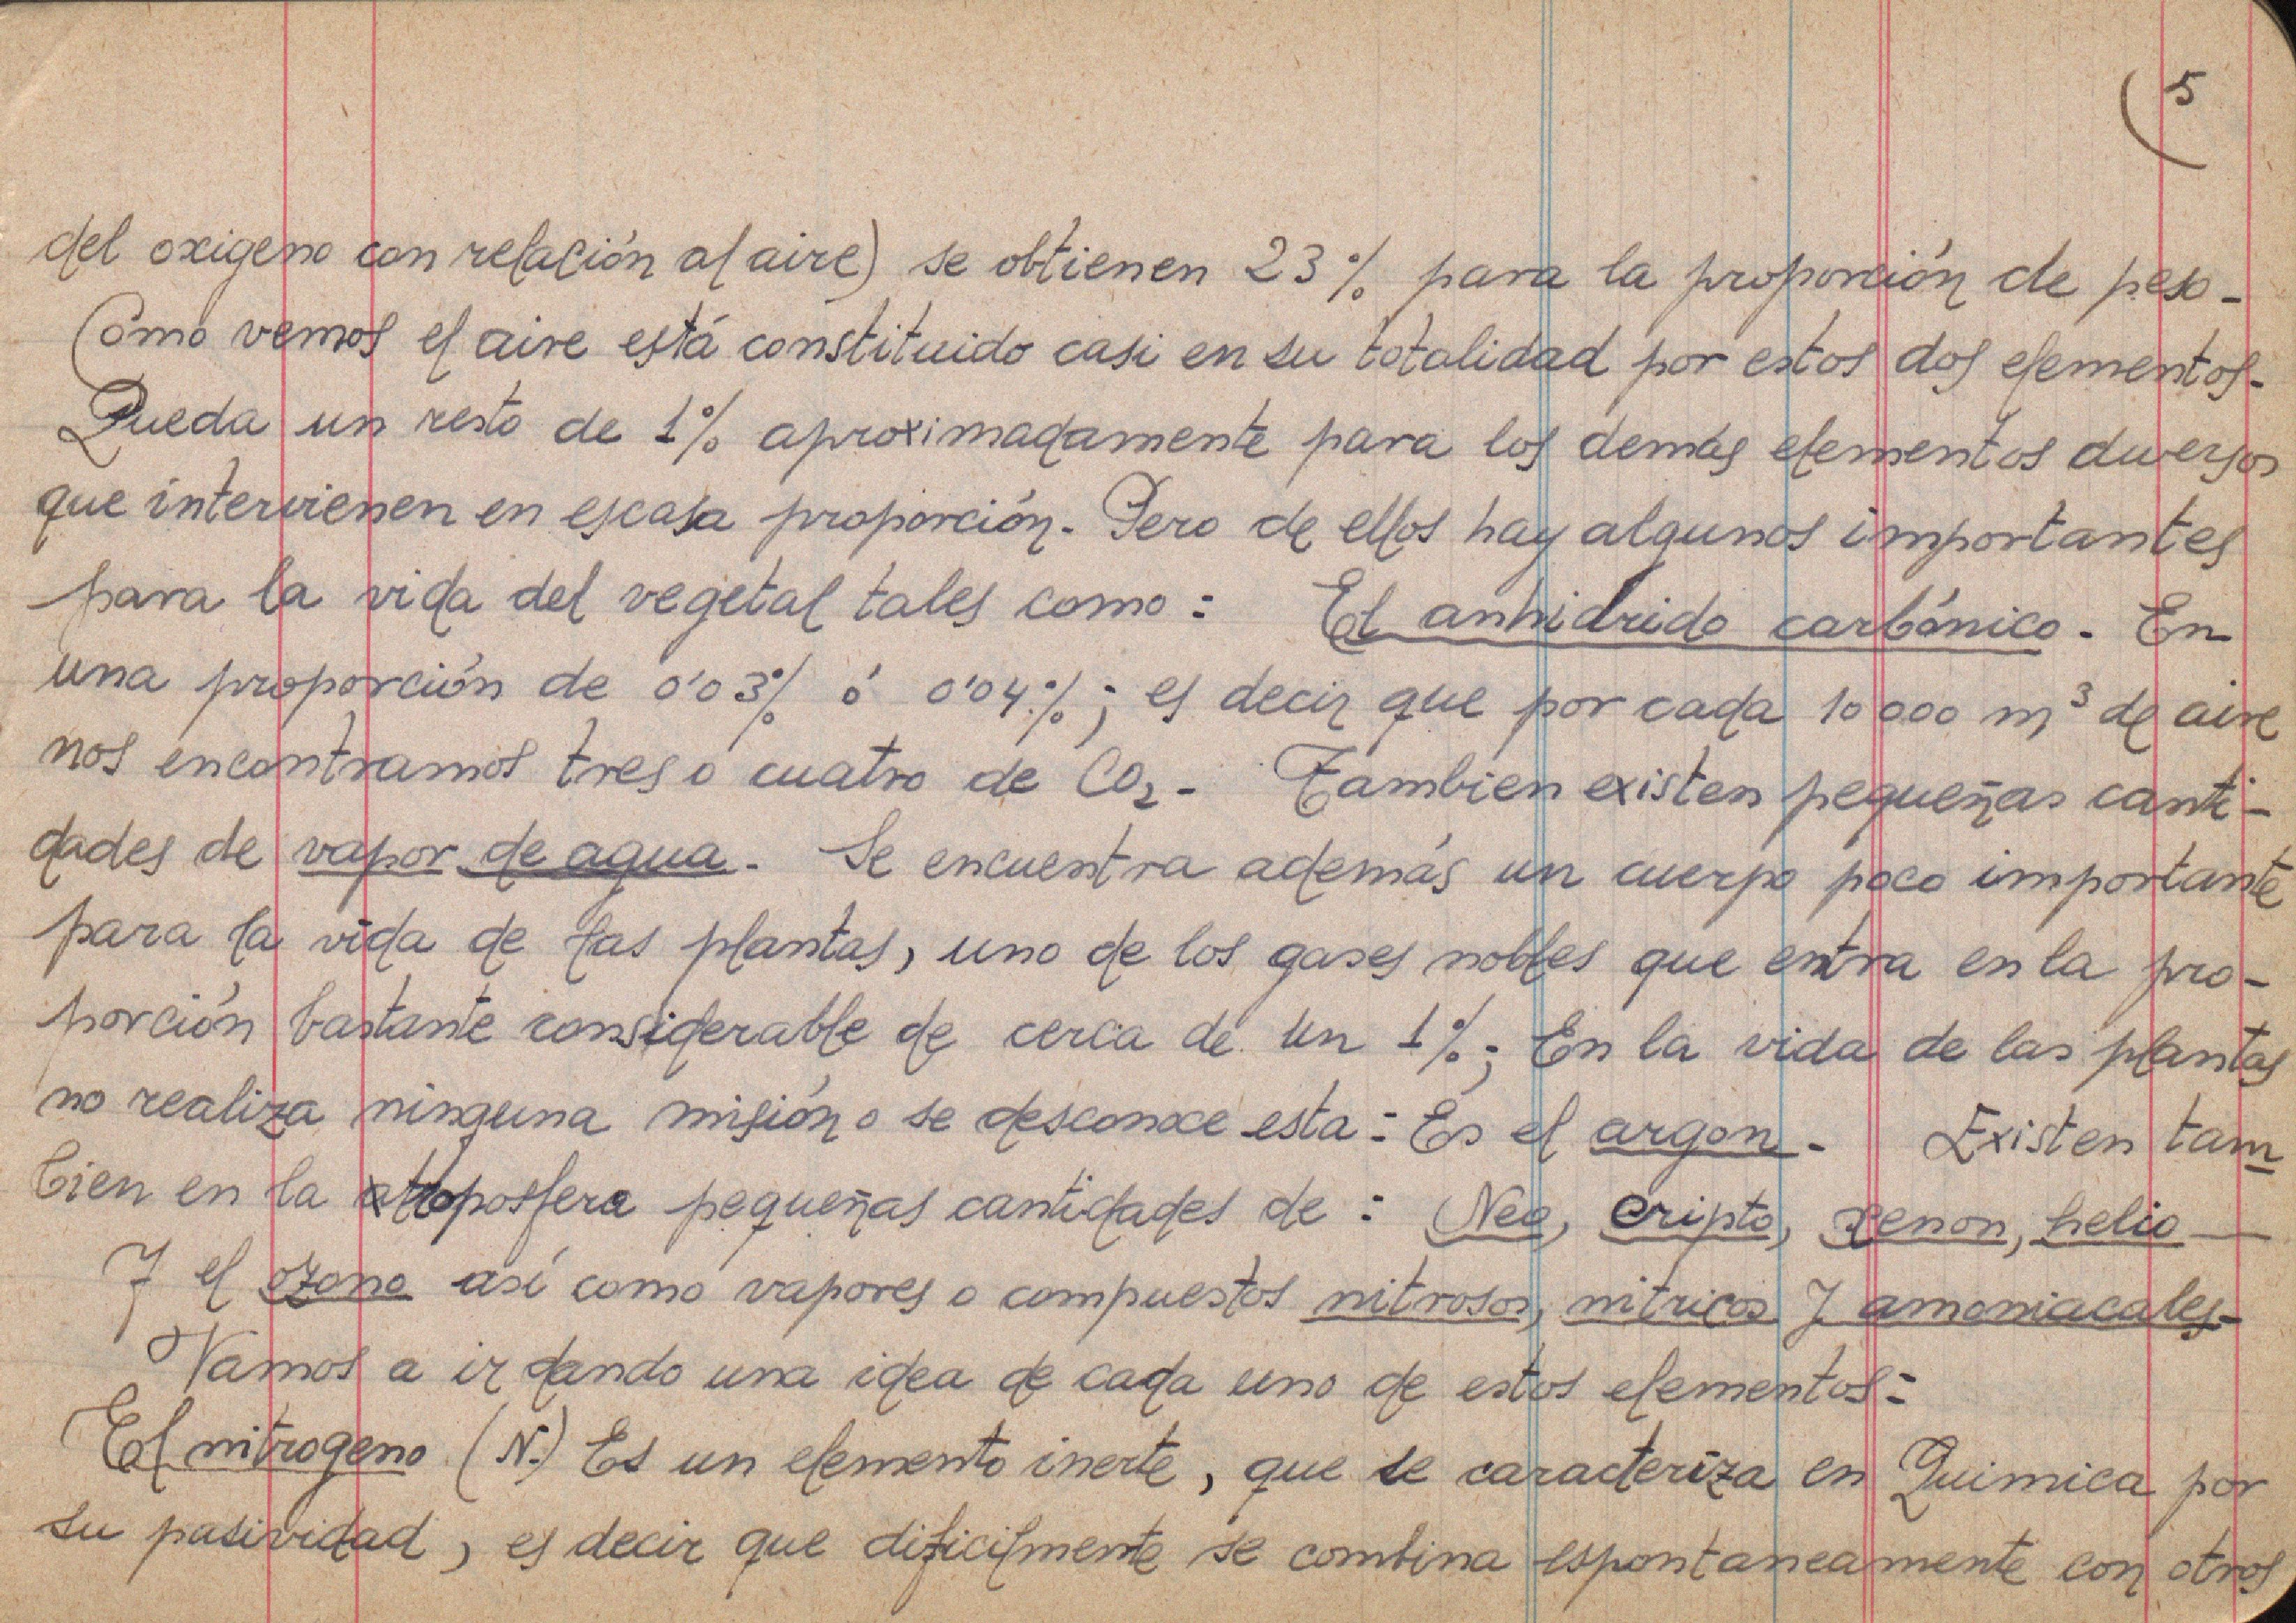 (5
del oxigeno con relación al aire) se obtienen 23% para la proporción de peso-
Como vemos el aire está constituido casi en su totalidad por estos dos elementos-
Queda un resto de 1% aproximadamente para los demás elementos diversos
que intervienen en escasa proporción- Pero de ellos hay algunos importantes
para la vida del vegetal tales como: El anhidrido carbónico- En
una proporción de 0'03% ó 0'04%; es decir que por cada 10000 m³ de aire
nos encontramos tres o cuatro de CO₂- Tambien existen pequeñas canti-
dades de vapor de agua- Se encuentra además un cuerpo poco importante
para la vida de las plantas, uno de los gases nobles que entra en la pro-
porción bastante considerable de cerca de un 1%; En la vida de las plantas
no realiza ninguna misión o se desconoce esta: Es el argon- Existen tam
bien en la pequeñas cantidades de: Neo, cripto, xenon, helio —
y el ozono así como vapores o compuestos nitrosos, nitricos y amoniacales-
Vamos a ir dando una idea de cada uno de estos elementos:
El nitrogeno (N.) Es un elemento inerte, que se caracteriza en Quimica por
su pasividad, es decir que dificilmente se combina espontaneamente con otros